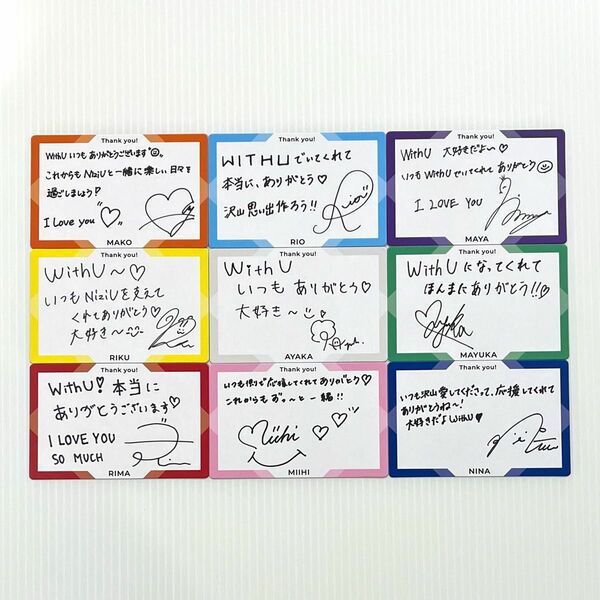 Thank you!
WithU いつもありがとうございます
これからもNiziUと一緒に楽しい日々を
過ごしましょう!
I Love you
MAKO
Thank you!
WITHUでいてくれて
本当に、ありがとう♡
沢山思い出作ろう!!
Rio
RIO
Thank you!
WithU 大好きだよ〜♡
いつもWithUでいてくれてありがとう
I LOVE YOU
MAYA
Thank you!
WithU〜♡
いつもNiziUを支えて
くれてありがとう♡
大好き〜
RIKU
Thank you!
WithU
いつもありがとう♡
大好き〜
AYAKA
Thank you!
WithUになってくれて
ほんまにありがとう!!♡
Mayuka
MAYUKA
Thank you!
WithU!本当に
ありがとうございます♡
I LOVE YOU
SO MUCH
RIMA
Thank you!
いつも傍で応援してくれてありがとう♡
これからもずっと一緒!!
Miihi
MIIHI
Thank you!
いつも沢山愛してくださって、応援してくれて
ありがとうね〜!
大好きだよWithU♥
NINA